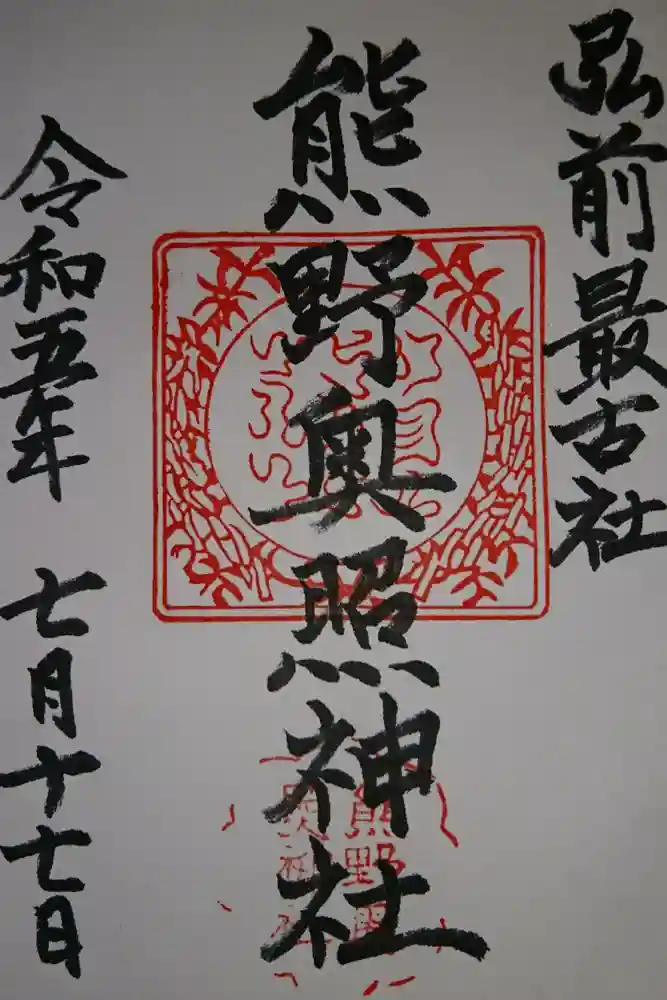 弘前最古社
熊野奥照神社
令和五年 七月十七日